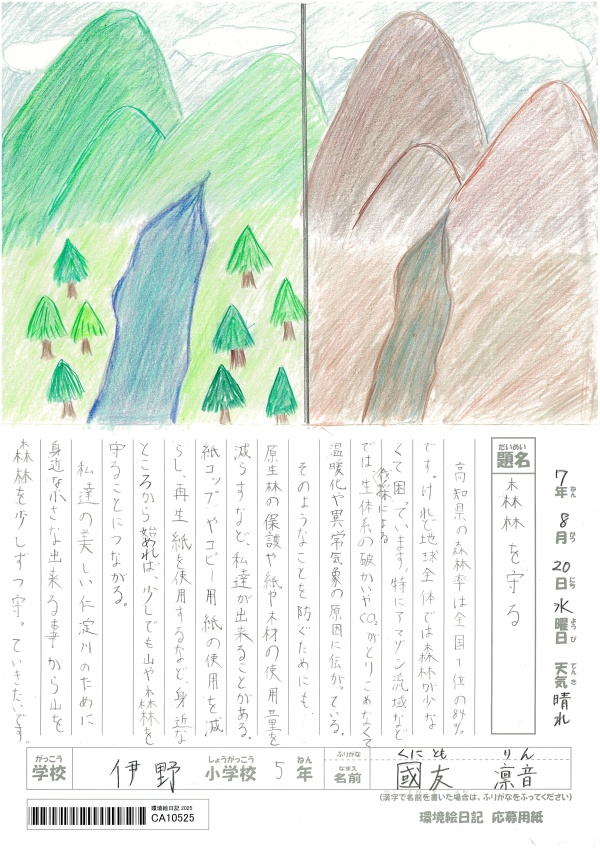 7年 8月 20日 水曜日 天気 晴れ
ねん がつ にち ようび てんき
だいめい
題名
森林を守る
高知県の森林率は全国1位の84%
です。けれど地球全体では森林が少な
くて困っています。特にアマゾン流域など
では、伐採による生体系の破かいやCO₂がとりこめなくて
温暖化や異常気象の原因に伝がっている。
そのようなことを防ぐためにも、
原生林の保護や紙や木材の使用量を
減らすなど、私達が出来ることがある。
紙コップやコピー用紙の使用を減
らし、再生紙を使用するなど、身近な
ところから始めれば、少しでも山や森林を
守ることにつながる。
私達の美しい仁淀川のために
身近な小さな出来る事から山を
森林を少しずつ守っていきたいです。
がっこう しょうがっこう ねん ふりがな くにとも りん
学校 伊野 小学校 5年 なまえ 名前 國友 凛音
(漢字で名前を書いた場合は、ふりがなをふってください)
環境絵日記 2025
CA10525
環境絵日記 応募用紙